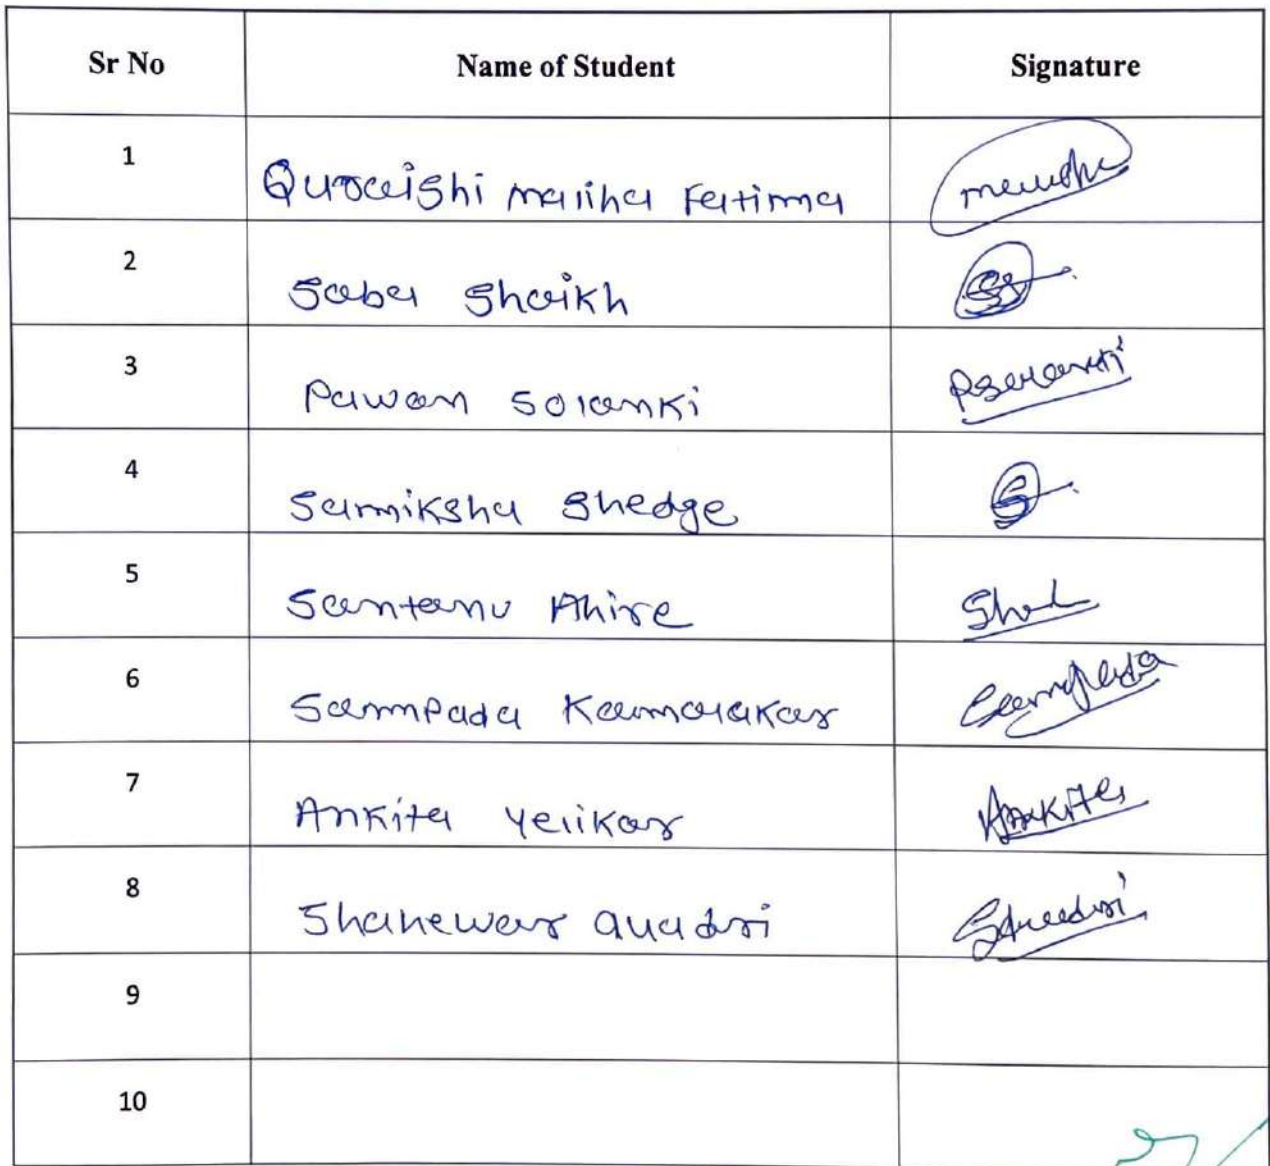 Sr No Name of Student Signature
1 Quraishi Maliha Fatima
2 Saba Shaikh
3 Pawan Solanki Psolanki
4 Samiksha Shedge
5 Santanu Ahire
6 Sampada Kamalakar Sampada
7 Ankita Yelikar Ankita
8 Shahewar Quadri SQuadri
9
10